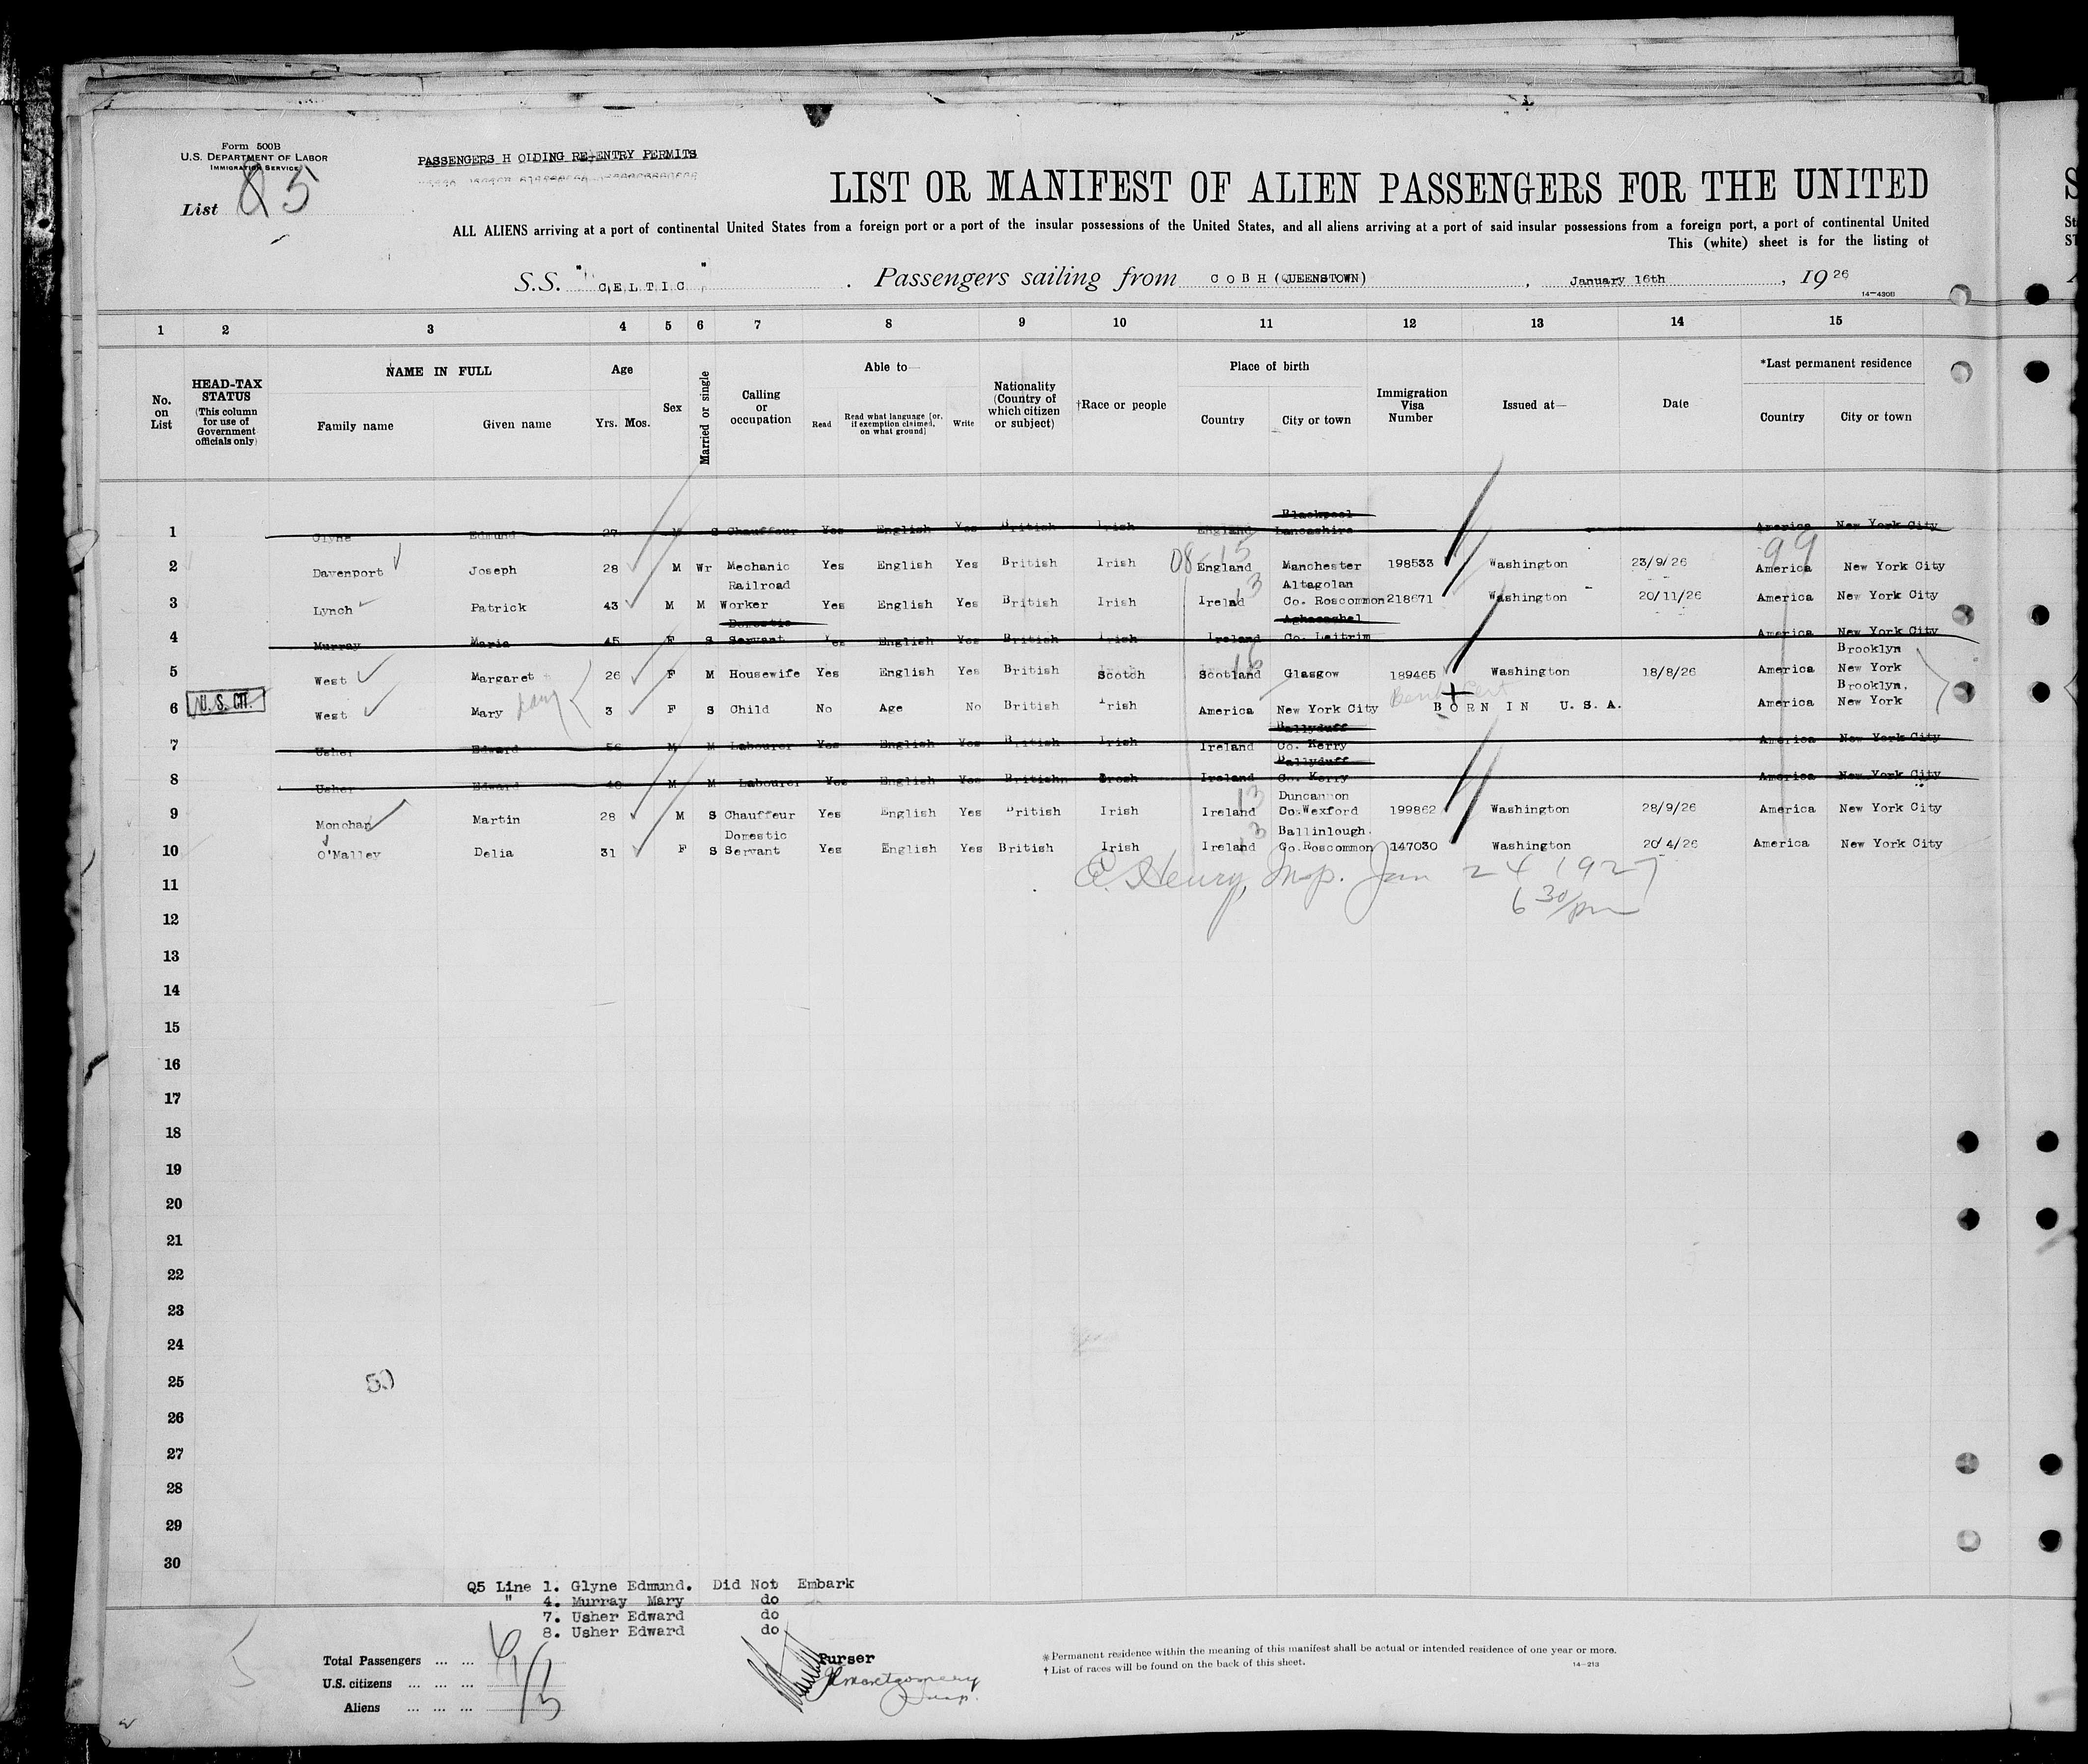 Form 500B
U.S. DEPARTMENT OF LABOR
IMMIGRATION SERVICE
PASSENGERS H OLDING RE-ENTRY PERMITS
List 5
LIST OR MANIFEST OF ALIEN PASSENGERS FOR THE UNITED
ALL ALIENS arriving at a port of continental United States from a foreign port or a port of the insular possessions of the United States, and all aliens arriving at a port of said insular possessions from a foreign port, a port of continental United
This (white) sheet is for the listing of
S.S. " CELTIC " . Passengers sailing from COBH (QUEENSTOWN) , January 16th , 1926
14—430B
1 2 3 4 5 6 7 8 9 10 11 12 13 14 15
No. on List
HEAD-TAX STATUS
(This column for use of Government officials only)
NAME IN FULL
Family name Given name
Age
Yrs. Mos.
Sex
Married or single
Calling or occupation
Able to—
Read Read what language [or, if exemption claimed, on what ground] Write
Nationality (Country of which citizen or subject)
†Race or people
Place of birth
Country City or town
Immigration Visa Number
Issued at—
Date
*Last permanent residence
Country City or town
1 Glyne Edmund 27 M S Chauffeur Yes English Yes British Irish England Blackpool Lancashire America New York City
2 Davenport Joseph 28 M Wr Mechanic Yes English Yes British Irish 08-15 England Manchester 198533 Washington 23/9/26 99 America New York City
3 Lynch Patrick 43 M M Railroad Worker Yes English Yes British Irish Irelnd 13 Altagolan Co. Roscommon 218671 Washington 20/11/26 America New York City
4 Murray Maria 45 F S Domestic Servant Yes English Yes British Irish Ireland Aghacashel Co. Leitrim America New York City
5 West Margaret 26 F M Housewife Yes English Yes British Scotch Scotland 16 Glasgow 189465 Washington 18/8/26 America Brooklyn New York
6 U.S. CIT. West Mary 3 F S Child No Age No British Irish America New York City BORN IN U.S.A. America Brooklyn, New York
7 Usher Edward 56 M M Labourer Yes English Yes British Irish Ireland Ballyduff Co. Kerry America New York City
8 Usher Edward 48 M M Labourer Yes English Yes Britishn Irosh Ireland Ballyduff Co. Kerry America New York City
9 Monohan Martin 28 M S Chauffeur Yes English Yes British Irish Ireland 13 Duncannon Co.Wexford 199862 Washington 28/9/26 America New York City
10 O'Malley Delia 31 F S Domestic Servant Yes English Yes British Irish Ireland 13 Ballinlough. Co.Roscommon 147030 Washington 20/4/26 America New York City
11 Henry, Insp. Jan 24 1927
12 6 30/pm
13
14
15
16
17
18
19
20
21
22
23
24
25
26
27
28
29
30
Q5 Line 1. Glyne Edmund. Did Not Embark
" 4. Murray Mary do
7. Usher Edward do
8. Usher Edward do
Total Passengers ... ... 6
U.S. citizens ... ... ... 1
Aliens ... ... ... 5
Purser
Montgomery
Insp.
* Permanent residence within the meaning of this manifest shall be actual or intended residence of one year or more.
† List of races will be found on the back of this sheet.
14—213